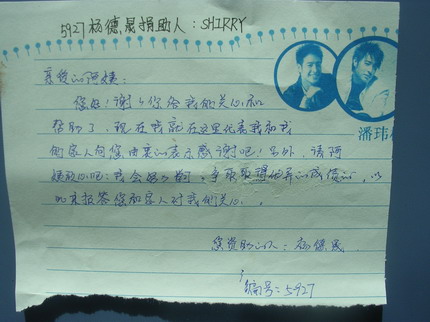 5927杨德晟捐助人：SHIRRY
亲爱的阿姨：
您好！谢谢你给我的关心和
帮助了，现在我就在这里代表我和我
的家人向您由衷的表示感谢吧！另外，请阿
姨放心吧！我会好好学习，争取取得优异的成绩的，以
此来报答您和家人对我的关心。
潘玮
您资助的人：杨德晟
编号：5927